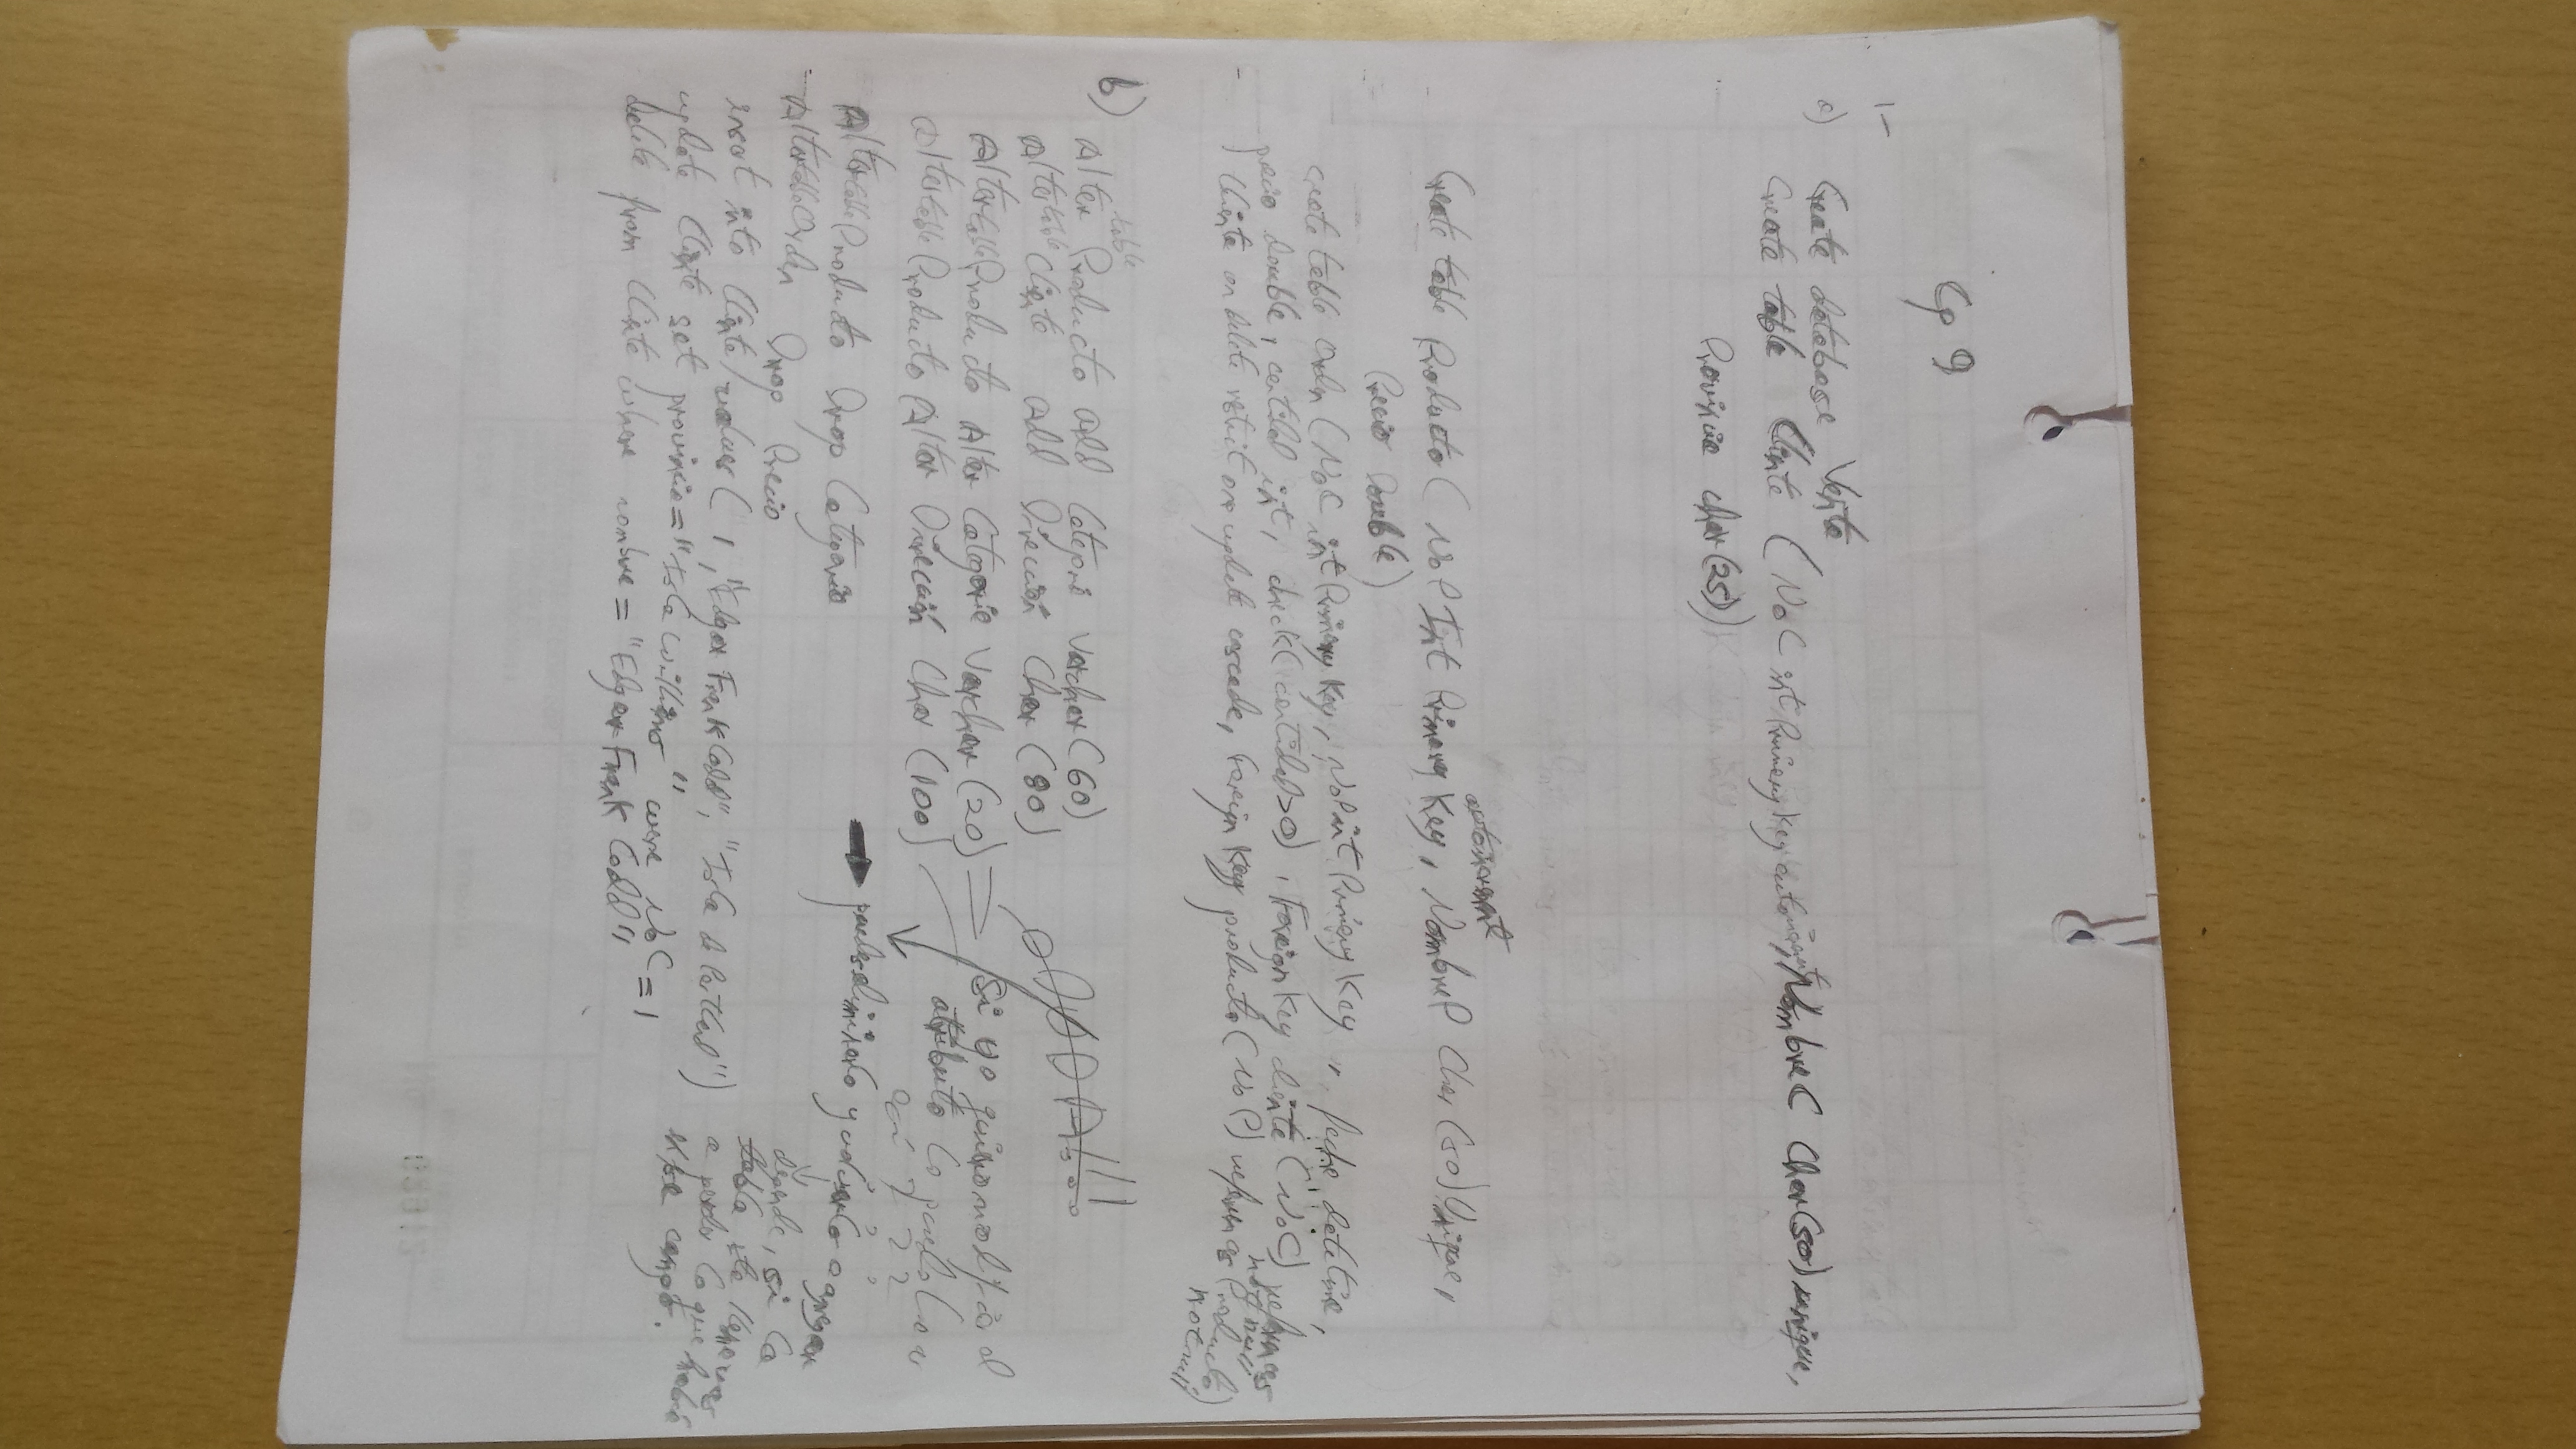 Cp 9
1-
a) Create database Venta
Create table Cliente (NoC int Primery Key autoincrement, NombreC Char(50) unique,
Provincia char(25))
autoincrement
Create table Producto (NoP Int Primery Key, NombreP Char (50) Unique,
Precio Double)
Create table Orden (NoC int Primery Key, NoP int Primery Key, fecha datetime,
precio double, cantidad int, check (cantidad>0), Foreign Key cliente (NoC) references
not null
Cliente on delete on update cascade, foreign Key producto (NoP) references Producto)
not null
b)
table
Alter Producto add Categoria Varchar (60)
Alter table Cliente add Dirección Char (80)
Alter table Producto Alter Categoria Varchar (20)
Alter table Producto Alter Dirección Char (100)
Alter table Producto Drop Categoria
Alter table Orden Drop Precio
insert into Cliente values (1, "Edgar Frank Codd", "Isla de Portland")
update Cliente set provincia = "Isla Williams" where NoC = 1
delete from Cliente where nombre = "Edgar Frank Codd"
Si yo quiero modificar el
atributo lo puedo
puedes eliminarlo y volverlo agregar
depende, si la
tabla esta llena vas
a perder lo que había
en ese campo.